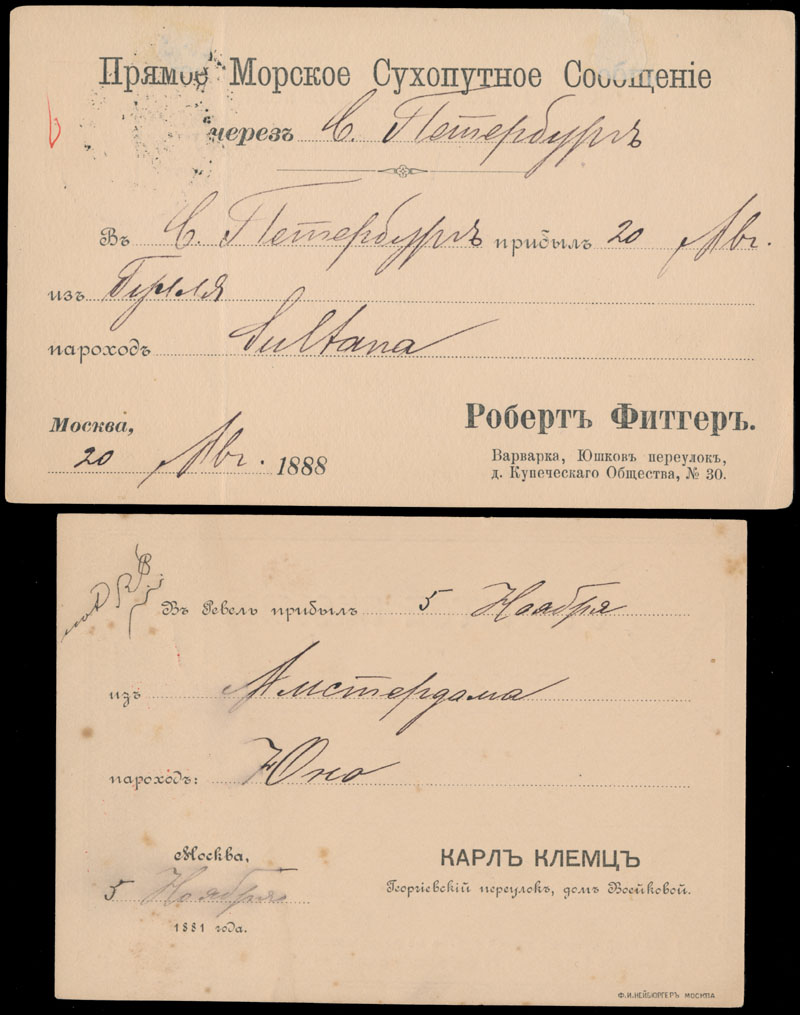 Прямое Морское Сухопутное Сообщеніе
черезъ С. Петербургъ
Въ С. Петербургъ прибылъ 20 Авг.
изъ Гулля
пароходъ Sultana
Москва,
20 Авг. 1888
Робертъ Фитгеръ.
Варварка, Юшковъ переулокъ,
д. Купеческаго Общества, № 30.
Въ Ревель прибылъ 5 Ноября
изъ Амстердама
пароходъ: Юно
Москва,
5 Ноября
1881 года.
КАРЛЪ КЛЕМЦЪ
Георгіевскій переулокъ, домъ Воейковой.
Ф.И.НЕЙБЮРГЕРЪ МОСКВА